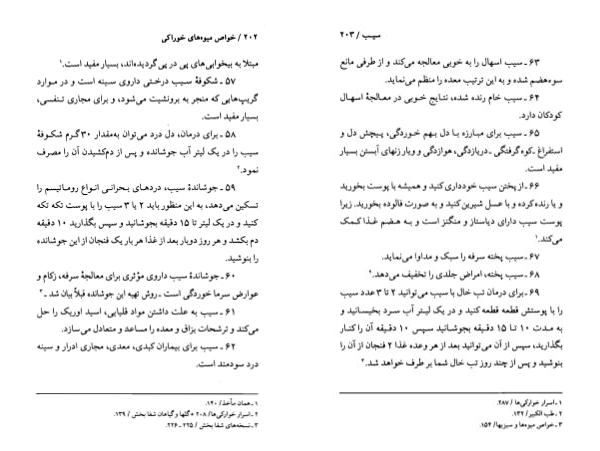 ۲۰۲ / خواص میوه‌های خوراکی
مبتلا به بیخوابی‌های پی در پی گردیده‌اند، بسیار مفید است.۱
۵۷ ـ شکوفهٔ سیب درختی داروی سینه است و در موارد
گریپ‌هایی که منجر به برونشیت می‌شود، و برای مجاری تنفسی،
بسیار مفید است.
۵۸ ـ برای درمان، دل درد می‌توان به‌مقدار ۳۰ گرم شکوفهٔ
سیب را در یک لیتر آب جوشانده و پس از دم‌کشیدن آن را مصرف
نمود.۲
۵۹ ـ جوشاندهٔ سیب، دردهای بحرانی انواع روماتیسم را
تسکین می‌دهد، به این منظور باید ۲ یا ۳ سیب را با پوست تکه تکه
کنید و در یک لیتر تا ۱۵ دقیقه بجوشانید و سپس بگذارید ۱۰ دقیقه
دم بکشد و هر روز دوبار بعد از غذا هر بار یک فنجان از این جوشانده
را بنوشید.
۶۰ ـ جوشاندهٔ سیب داروی مؤثری برای معالجهٔ سرفه، زکام و
عوارض سرما خوردگی است ـ روش تهیه این جوشانده قبلاً بیان شد ـ ۳
۶۱ ـ سیب به علت داشتن مواد قلیایی، اسید اوریک را حل
می‌کند و ترشحات بزاق و معده را مساعد و متعادل می‌سازد.
۶۲ ـ سیب برای بیماران کبدی، معدی، مجاری ادرار و سینه
درد سودمند است.
۱ ـ همان مأخذ/ ۱۴۰.
۲ ـ اسرار خوارکی‌ها/ ۲۰۸ + گلها و گیاهان شفا بخش / ۱۳۹.
۳ ـ نسخه‌های شفا بخش / ۲۲۵ ـ ۲۲۶.
سیب / ۲۰۳
۶۳ ـ سیب اسهال را به خوبی معالجه می‌کند و از طرفی مانع
سوءهضم شده و به این ترتیب معده را منظم می‌نماید.
۶۴ ـ سیب خام رنده شده، نتایج خوبی در معالجهٔ اسهال
کودکان دارد.
۶۵ ـ سیب برای مبارزه با دل بهم خوردگی، پیچش دل و
استفراغ ـ کوه‌گرفتگی ـ دریازدگی، هوازدگی و ویار زنهای آبستن بسیار
مفید است.
۶۶ ـ از پختن سیب خودداری کنید و همیشه با پوست بخورید
و یا رنده کرده و با عسل شیرین کنید و به صورت فالوده بخورید. زیرا
پوست سیب دارای دیاستاز و منگنز است و به هضم غذا کمک
می‌کند.۱
۶۷ ـ سیب پخته سرفه را سبک و مداوا می‌نماید.
۶۸ ـ سیب پخته، امراض جلدی را تخفیف می‌دهد.۲
۶۹ ـ برای درمان تب خال با سیب می‌توانید ۲ تا ۳ عدد سیب
را با پوستش قطعه قطعه کنید و در یک لیتر آب سرد بخیسانید و
به مدت ۱۰ تا ۱۵ دقیقه بجوشانید سپس ۱۰ دقیقه آن را کنار
بگذارید، سپس از آن می‌توانید بعد از هر وعده غذا ۲ فنجان از آن را
بنوشید و پس از چند روز تب خال شما بر طرف خواهد شد.۳
۱ ـ اسرار خوارکی‌ها / ۲۸۷.
۲ ـ طب الکبیر / ۱۳۲.
۳ ـ خواص میوه‌ها و سبزیها/ ۱۵۴.